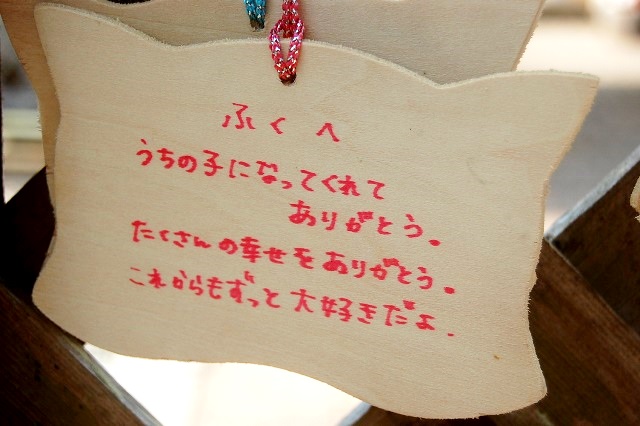 ふくへ
うちの子になってくれて
ありがとう。
たくさんの幸せをありがとう。
これからもずっと大好きだよ.